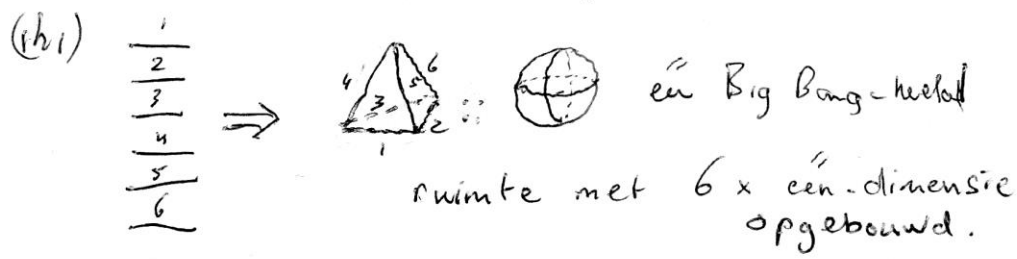 (1h1)
1
2
3
4
5
6
⇒
4 6
3 5
2
1
::
één Big Bang-heelal
ruimte met 6 x één-dimensie
opgebouwd.